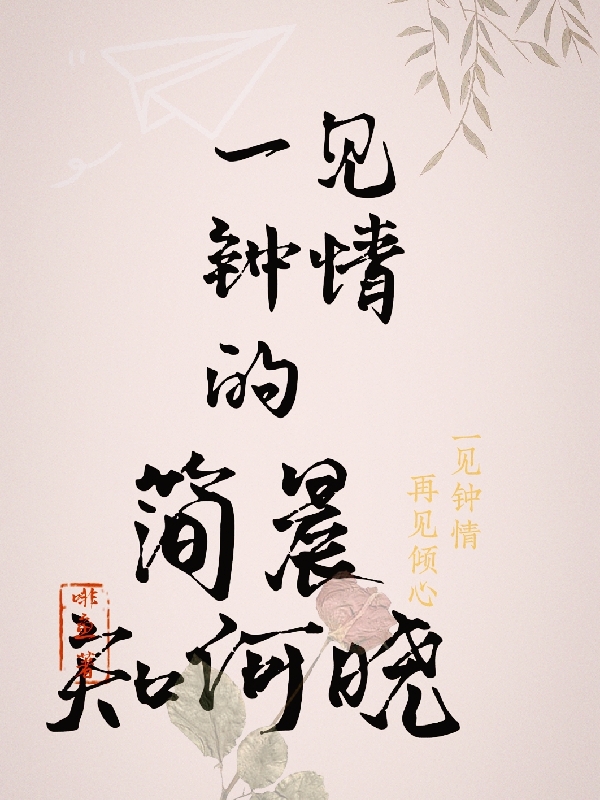 一见
钟情
的
简晨
知何晓
一见钟情
再见倾心
啡
著